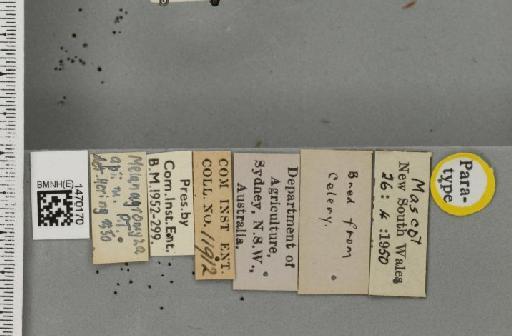 BMNH(E)
1470170
Melanagromyza
api n.
PT.
det Hering 950
Pres. by
Com. Inst. Ent.
B.M.1952-299.
COM INST ENT.
COLL. NO. 11912
Department of
Agriculture,
Sydney, N.S.W.,
Australia.
Bred from
Celery.
Mascot
New South Wales
26 : 4 : 1950
Para-
type